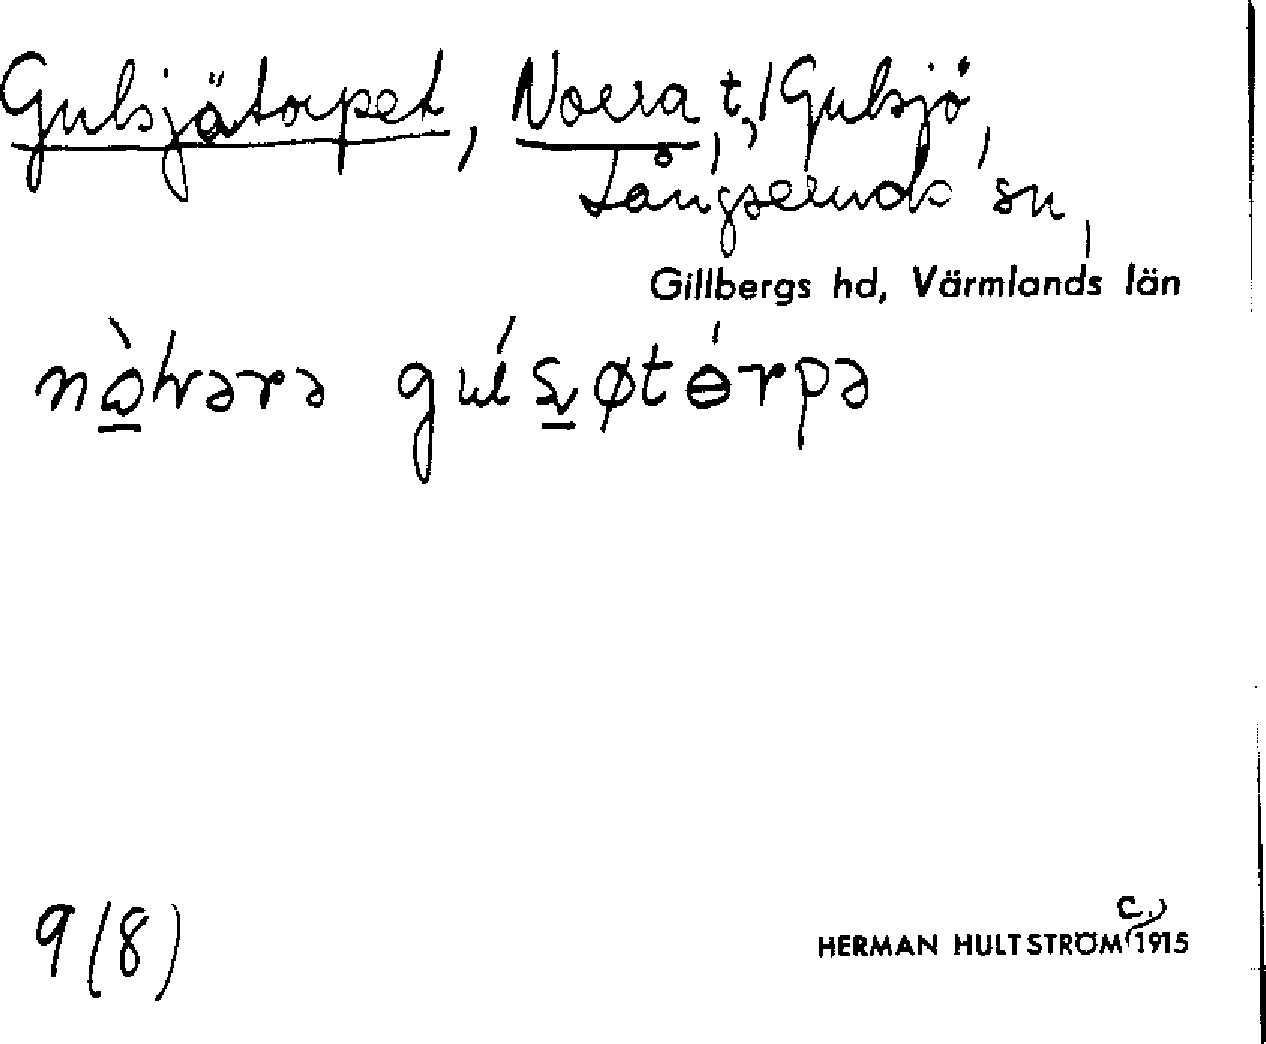 Gulsjötorpet, Norra, t, / Gulsjö,
Långseruds sn,
Gillbergs hd, Värmlands län
9 (8)
c.,
HERMAN HULTSTRÖM 1915